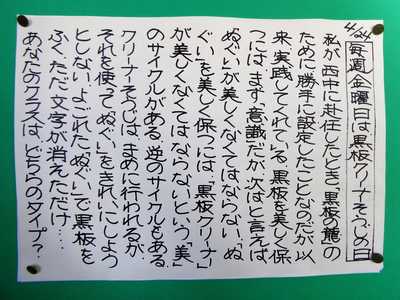 4/24
毎週金曜日は、黒板クリーナそうじの日
私が西中に赴任したとき、「黒板の態」の
ために勝手に設定したことなのだが、以
来、実践してくれている。黒板を美しく保
つには、まず、意識だが、次はと言えば、
ぬぐいが美しくなくてはならない。「ぬ
ぐい」を美しく保つには、「黒板クリーナ」
が美しくなくてはならないという、「美」
のサイクルがある。逆のサイクルもある。
クリーナそうじは、まめに行われるが、
それを使って「ぬぐい」をきれいにしよう
としない。よごれた「ぬぐい」で黒板を
ふく。ただ、文字が消えただけ・・・。
あなたのクラスは、どちらのタイプ？